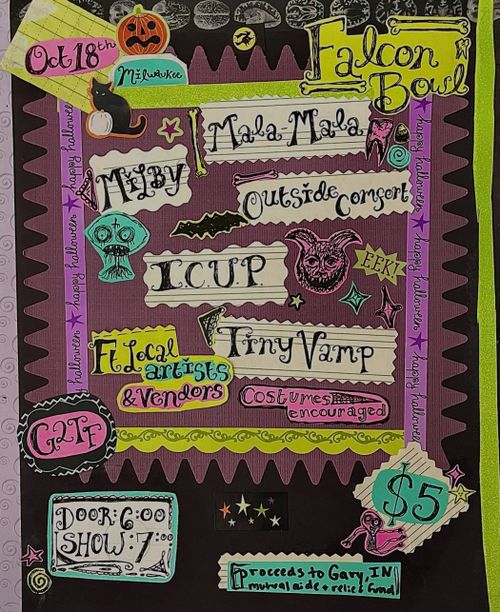 Oct 18th
Milwaukee
Falcon
Bowl
Mala-Mala
MiLBY
Outside Comfort
I.C.U.P.
EEK!
Tiny Vamp
Ft Local
artists
& Vendors
Costumes
encouraged
G2TF
$5
DOOR: 6:00
SHOW: 7:00
proceeds to Gary, IN
mutual aide + relief fund
happy halloween
happy halloween
happy halloween
happy halloween
happy halloween
happy halloween